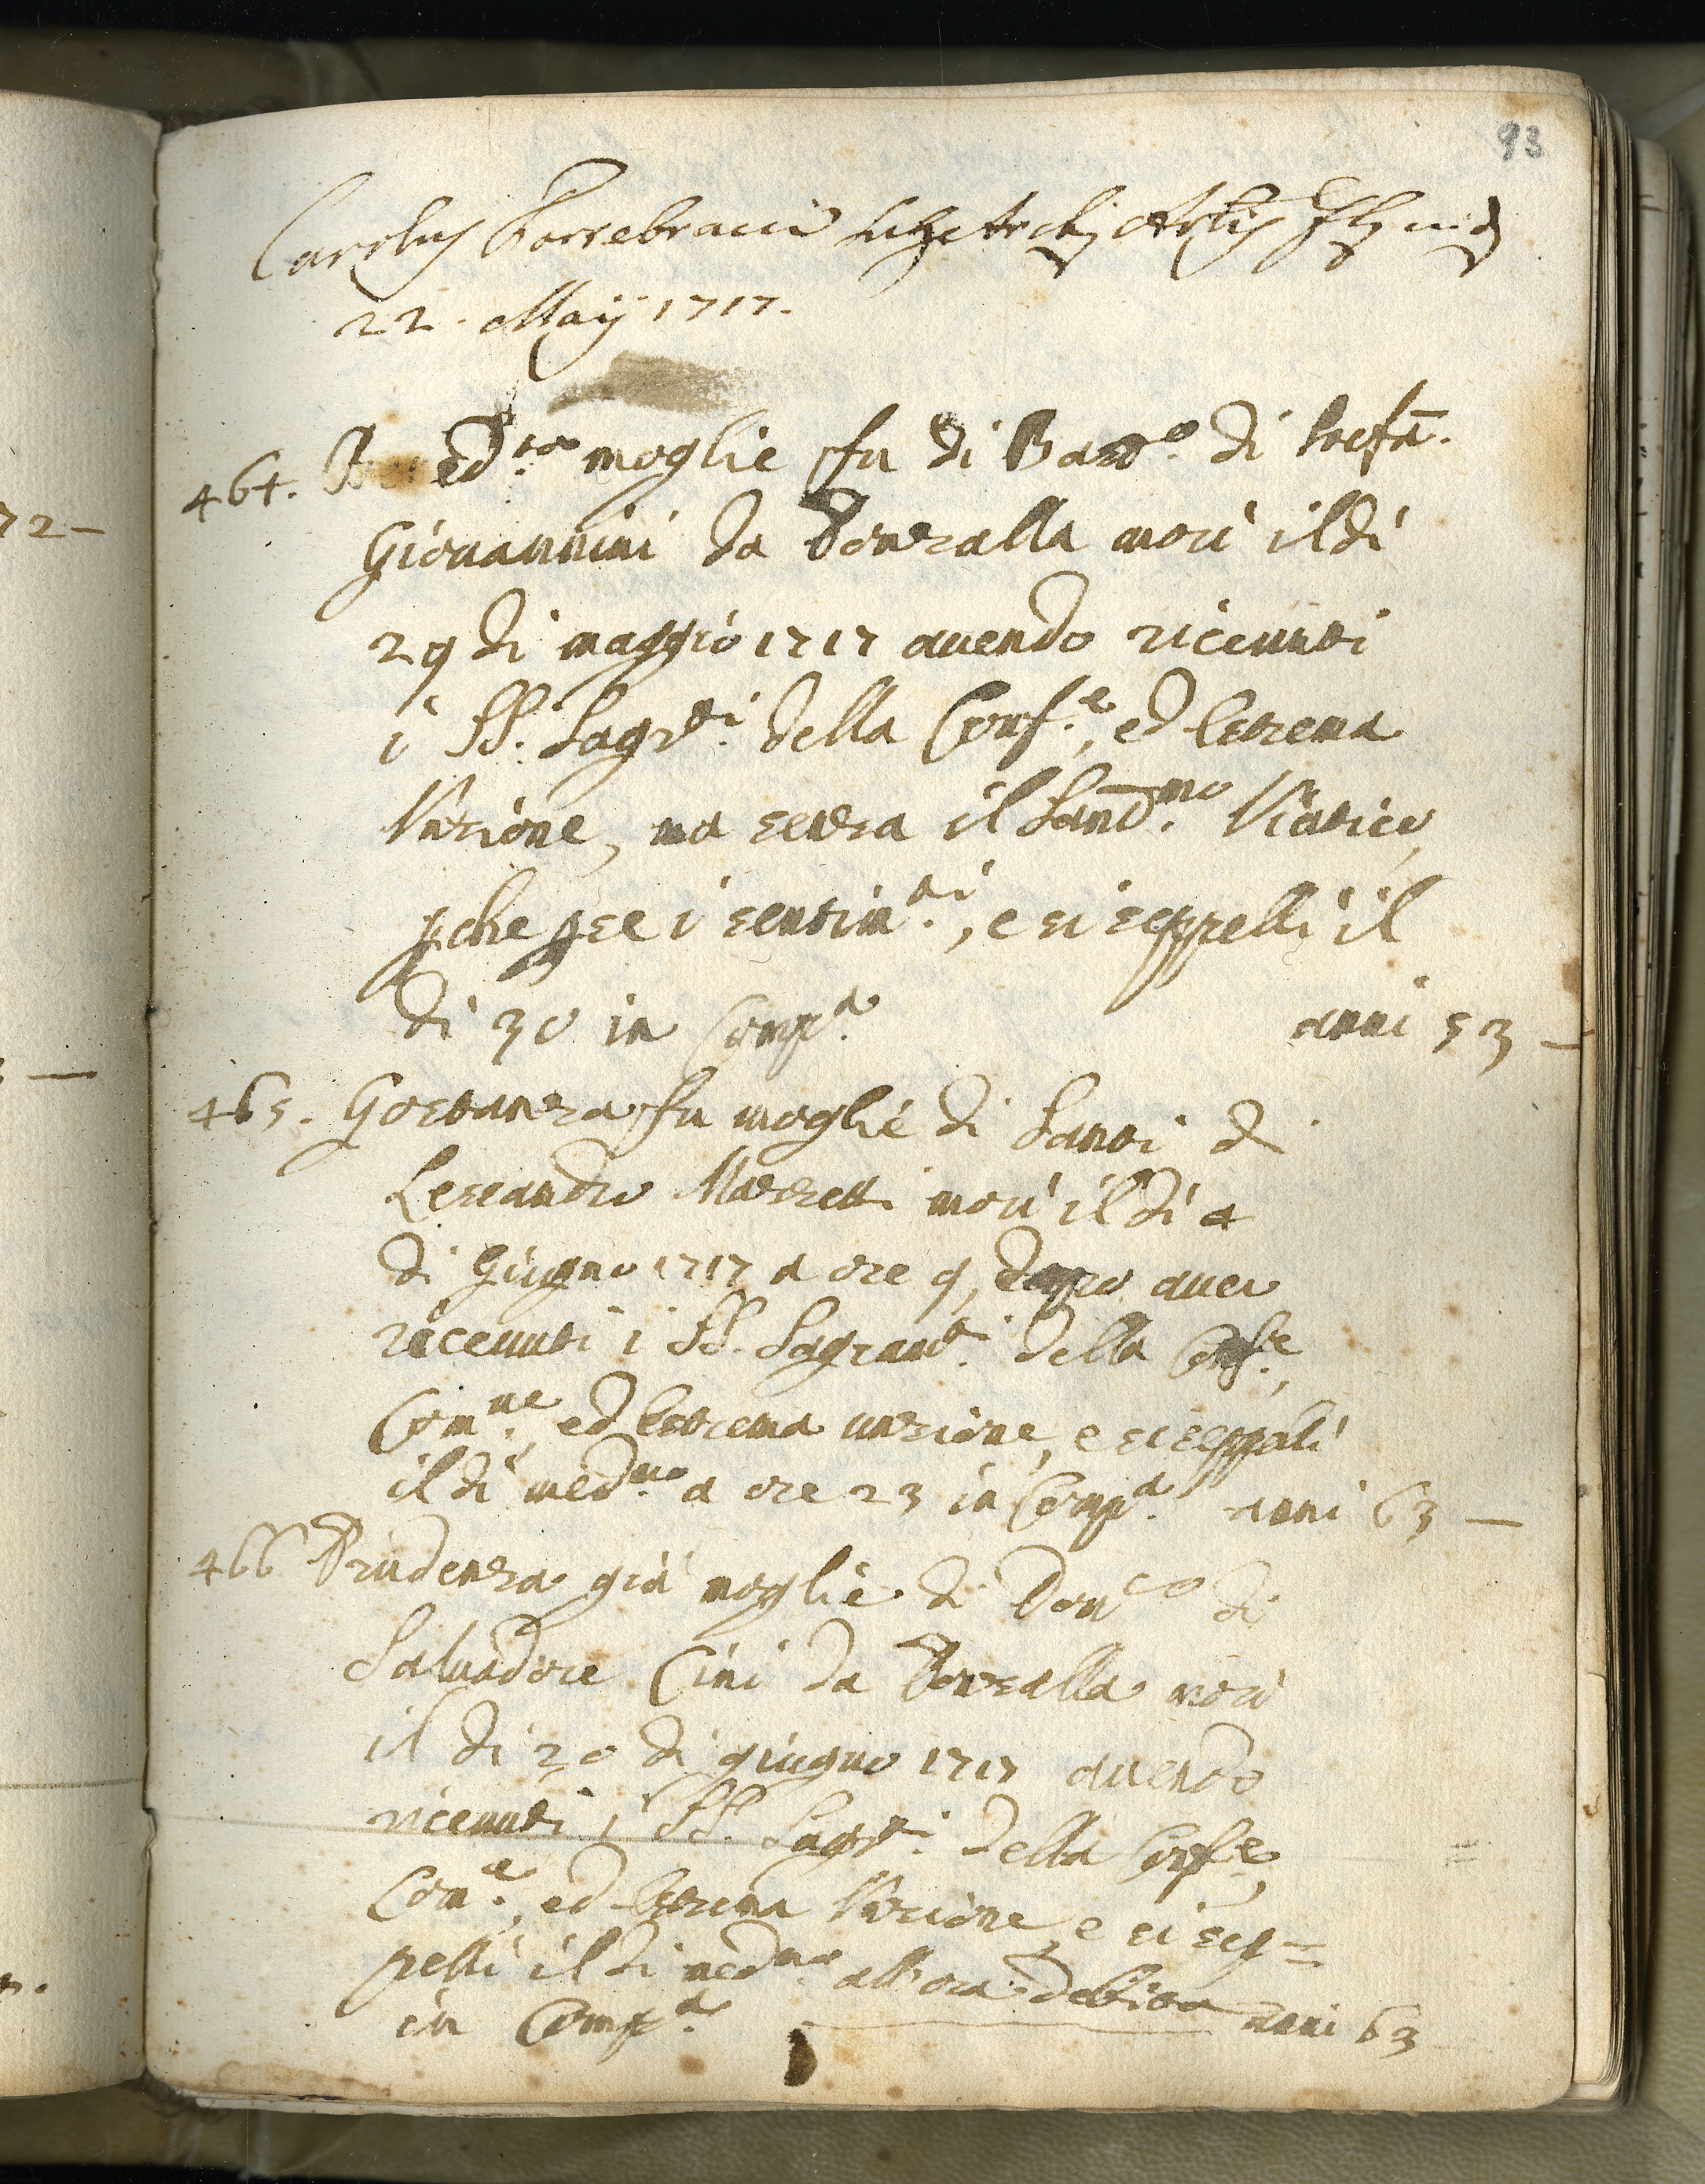 93
Carolus Fortebracci
22. Maij 1717.
464. Ben edta. moglie fu di Barto. di Stefa.
Giouannini da Ponzalla morì il dì
29 di maggio 1717 auendo riceuuti
i SS. Sagrti. della Conf.e, ed Estrema
Vnzione, ma senza il Santmo. Viatico,
pche pse i sentimti., e si seppellì il
dì 30 in Compa. anni 53 —
465. Gostanza fu moglie di Santi di
Lesandro Mazzetti morì il dì 4
di Giugno 1717 a ore 9, dopo auer
riceuuti i SS. Sagramti. della Conf.e,
Comne. ed Estrema unzione, e si seppellì
il dì medmo. a ore 23 in Compa. anni 63 —
466 Prudenza già moglie di Domco di
Saluadore Cini da Ponzalla morì
il dì 20 di giugno 1717 auendo
riceuuti i SS. Sagrti. della Conf.e,
Come., ed Estrema Vnzione, e si sep=
pellì il dì medmo. all'ora debita anni 63
in Compa.
72 —